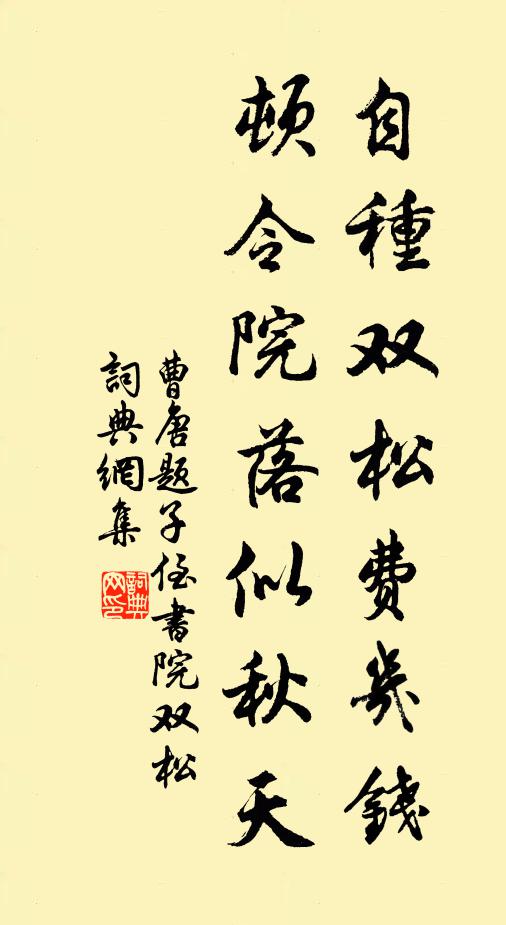 自種双松費幾錢
頓令院落似秋天
曹唐題子侄書院双松
詞典網集
詞典
网印